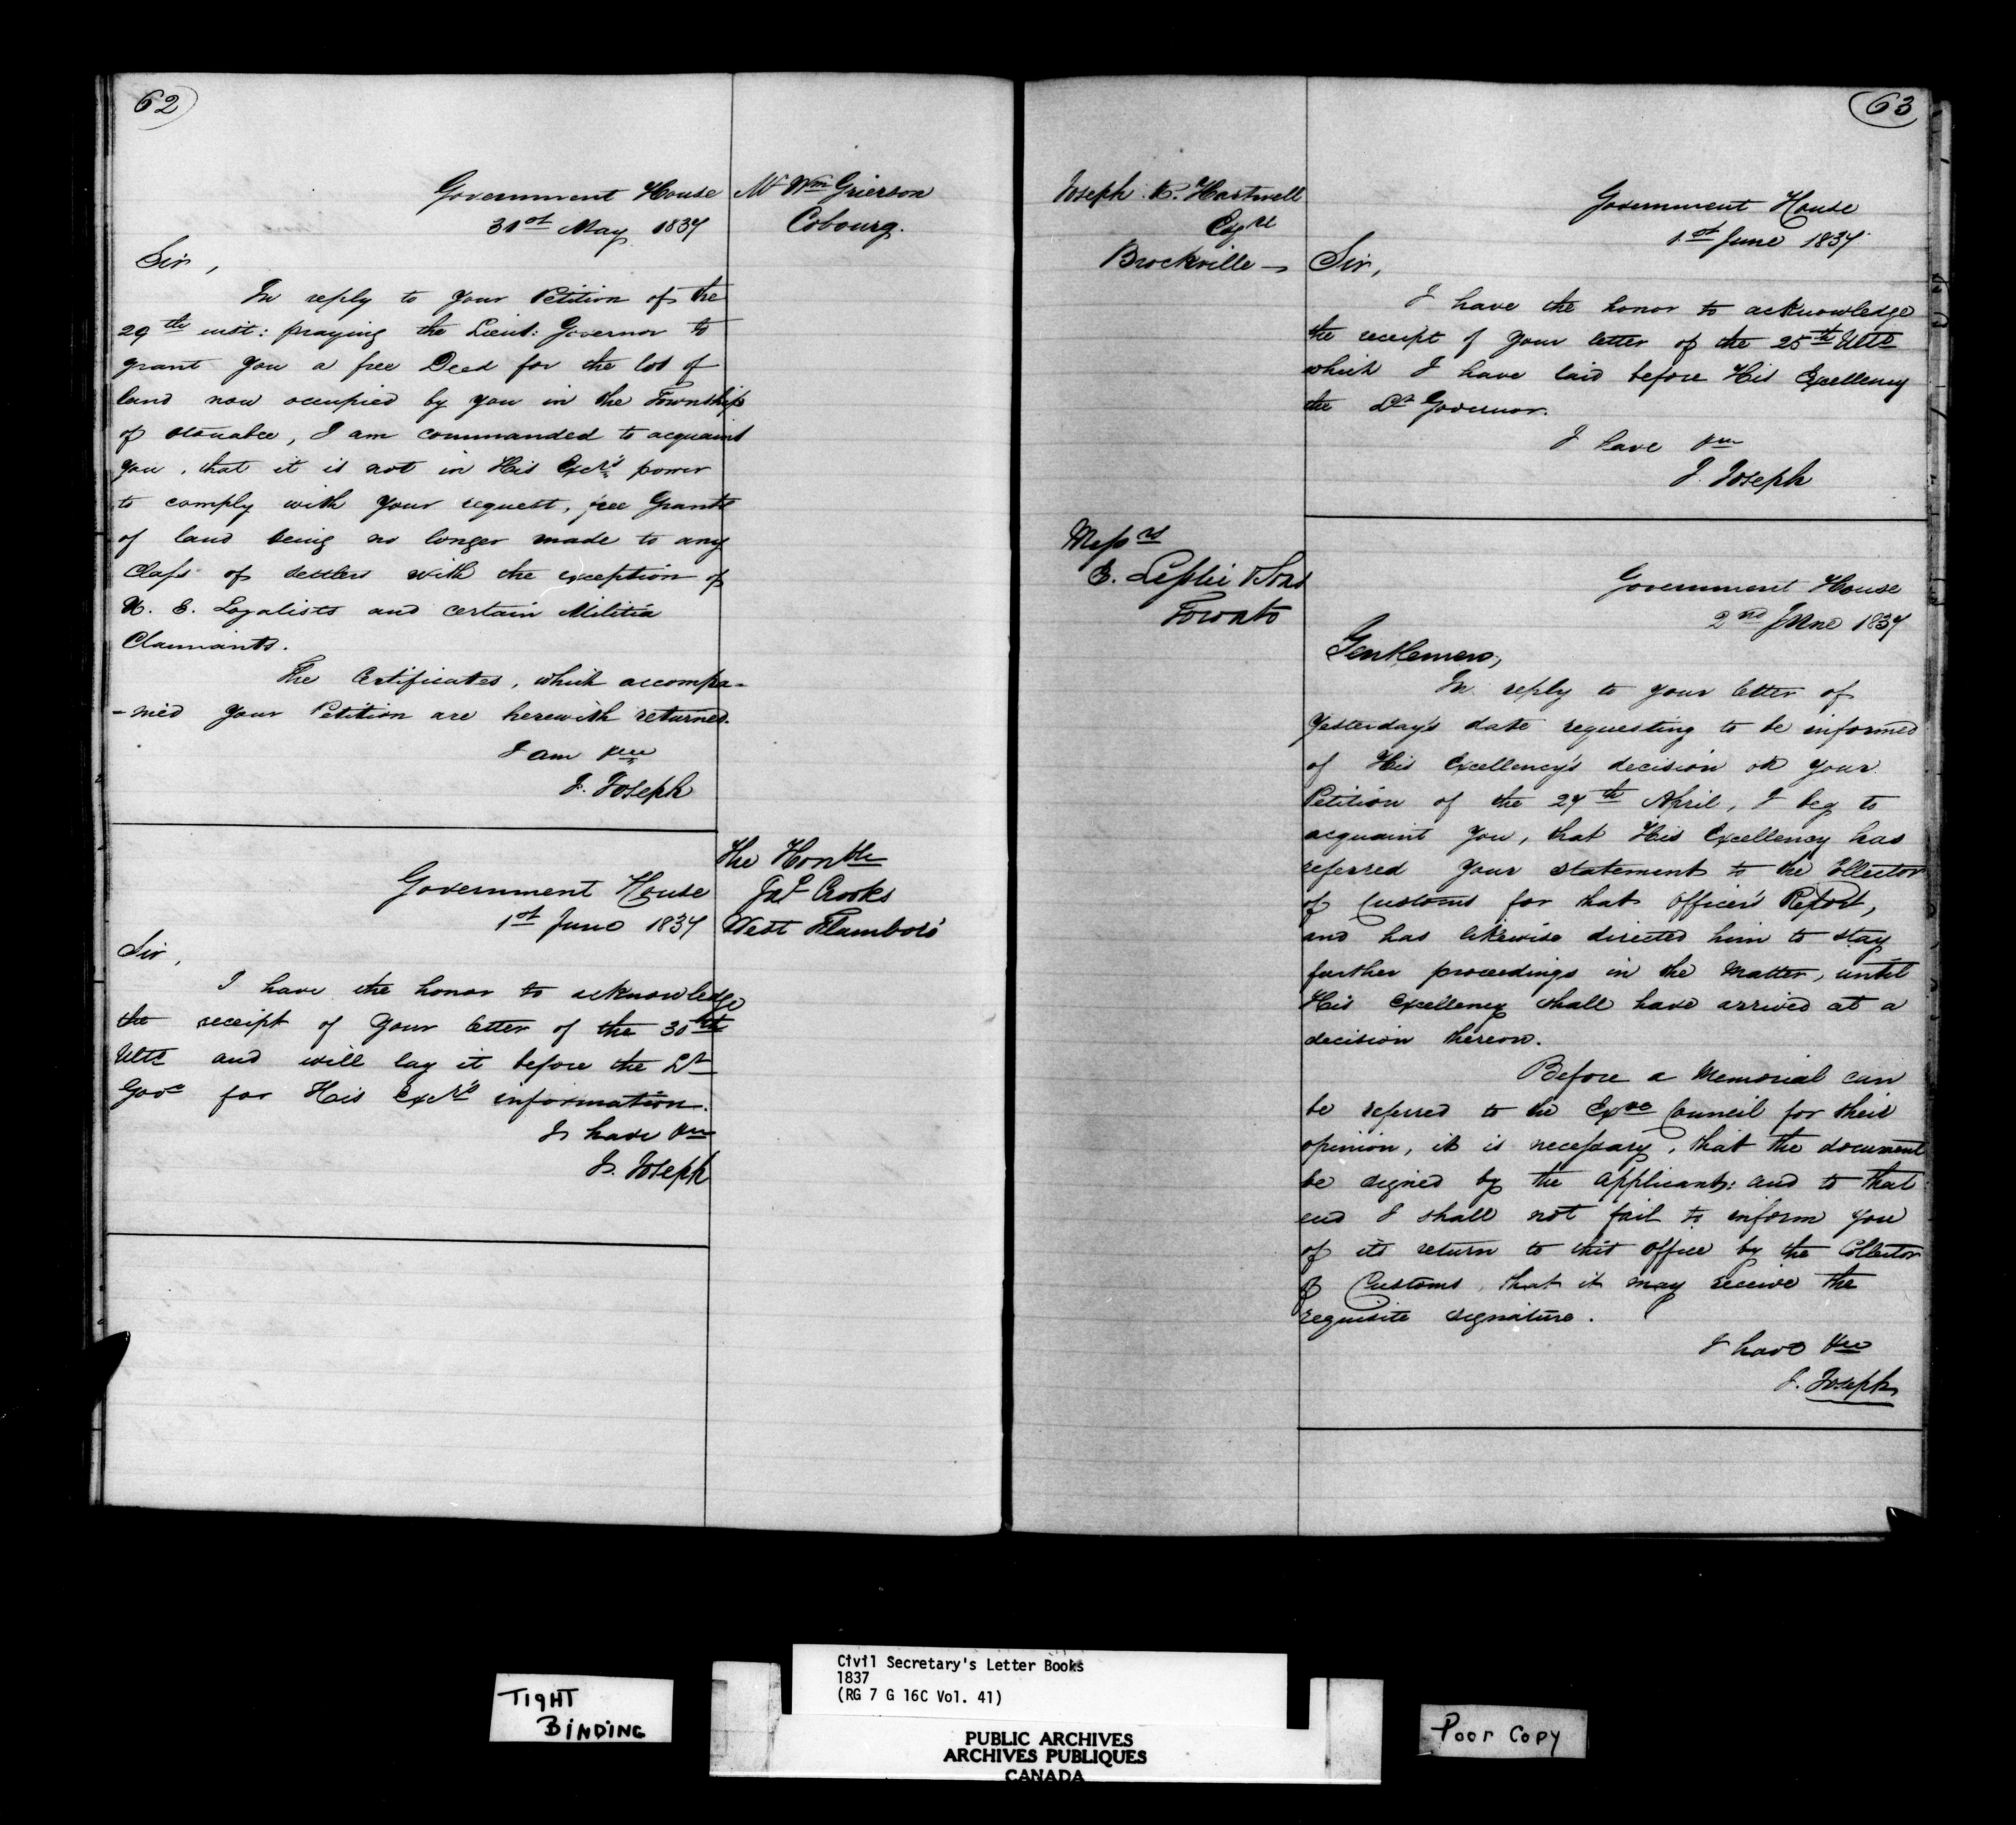 62
Government House
31st May 1837
Mr Wm Grierson
Cobourg.
Sir,
In reply to your Petition of the
29th inst: praying the Lieut: Governor to
grant you a free Deed for the lot of
land now occupied by you in the Township
of Otonabee, I am commanded to acquaint
you, that it is not in His Excy's power
to comply with your request, free Grants
of land being no longer made to any
Class of settlers with the exception of
U. E. Loyalists and certain Militia
Claimants.
The Certificates, which accompa-
-nied your Petition are herewith returned.
I am &c
J. Joseph
The Honble
Jas Crooks
West Flamboro'
Government House
1st June 1837
Sir,
I have the honor to acknowledge
the receipt of your letter of the 30th
Ulto and will lay it before the Lt
Govr for His Excy's information.
I have &c
J. Joseph
63
Joseph K. Hartwell
Esqre
Brockville
Government House
1st June 1837
Sir,
I have the honor to acknowledge
the receipt of your letter of the 25th Ulto
which I have laid before His Excellency
the Lt Governor.
I have &c
J. Joseph
Messrs
E. Leslie & Sons
Toronto
Government House
2nd June 1837
Gentlemen,
In reply to your letter of
yesterday's date requesting to be informed
of His Excellency's decision on your
Petition of the 27th April, I beg to
acquaint you, that His Excellency has
referred your statement to the Collector
of Customs for that Officer's Report,
and has likewise directed him to stay
further proceedings in the Matter, until
His Excellency shall have arrived at a
decision thereon.
Before a Memorial can
be referred to the Exve Council for their
opinion, it is necessary, that the document
be signed by the applicants: and to that
end I shall not fail to inform you
of its return to this Office by the Collector
of Customs, that it may receive the
requisite signature.
I have &c
J. Joseph
Civil Secretary's Letter Books
1837
(RG 7 G 16C Vol. 41)
TIGHT
BINDING
PUBLIC ARCHIVES
ARCHIVES PUBLIQUES
CANADA
Poor Copy